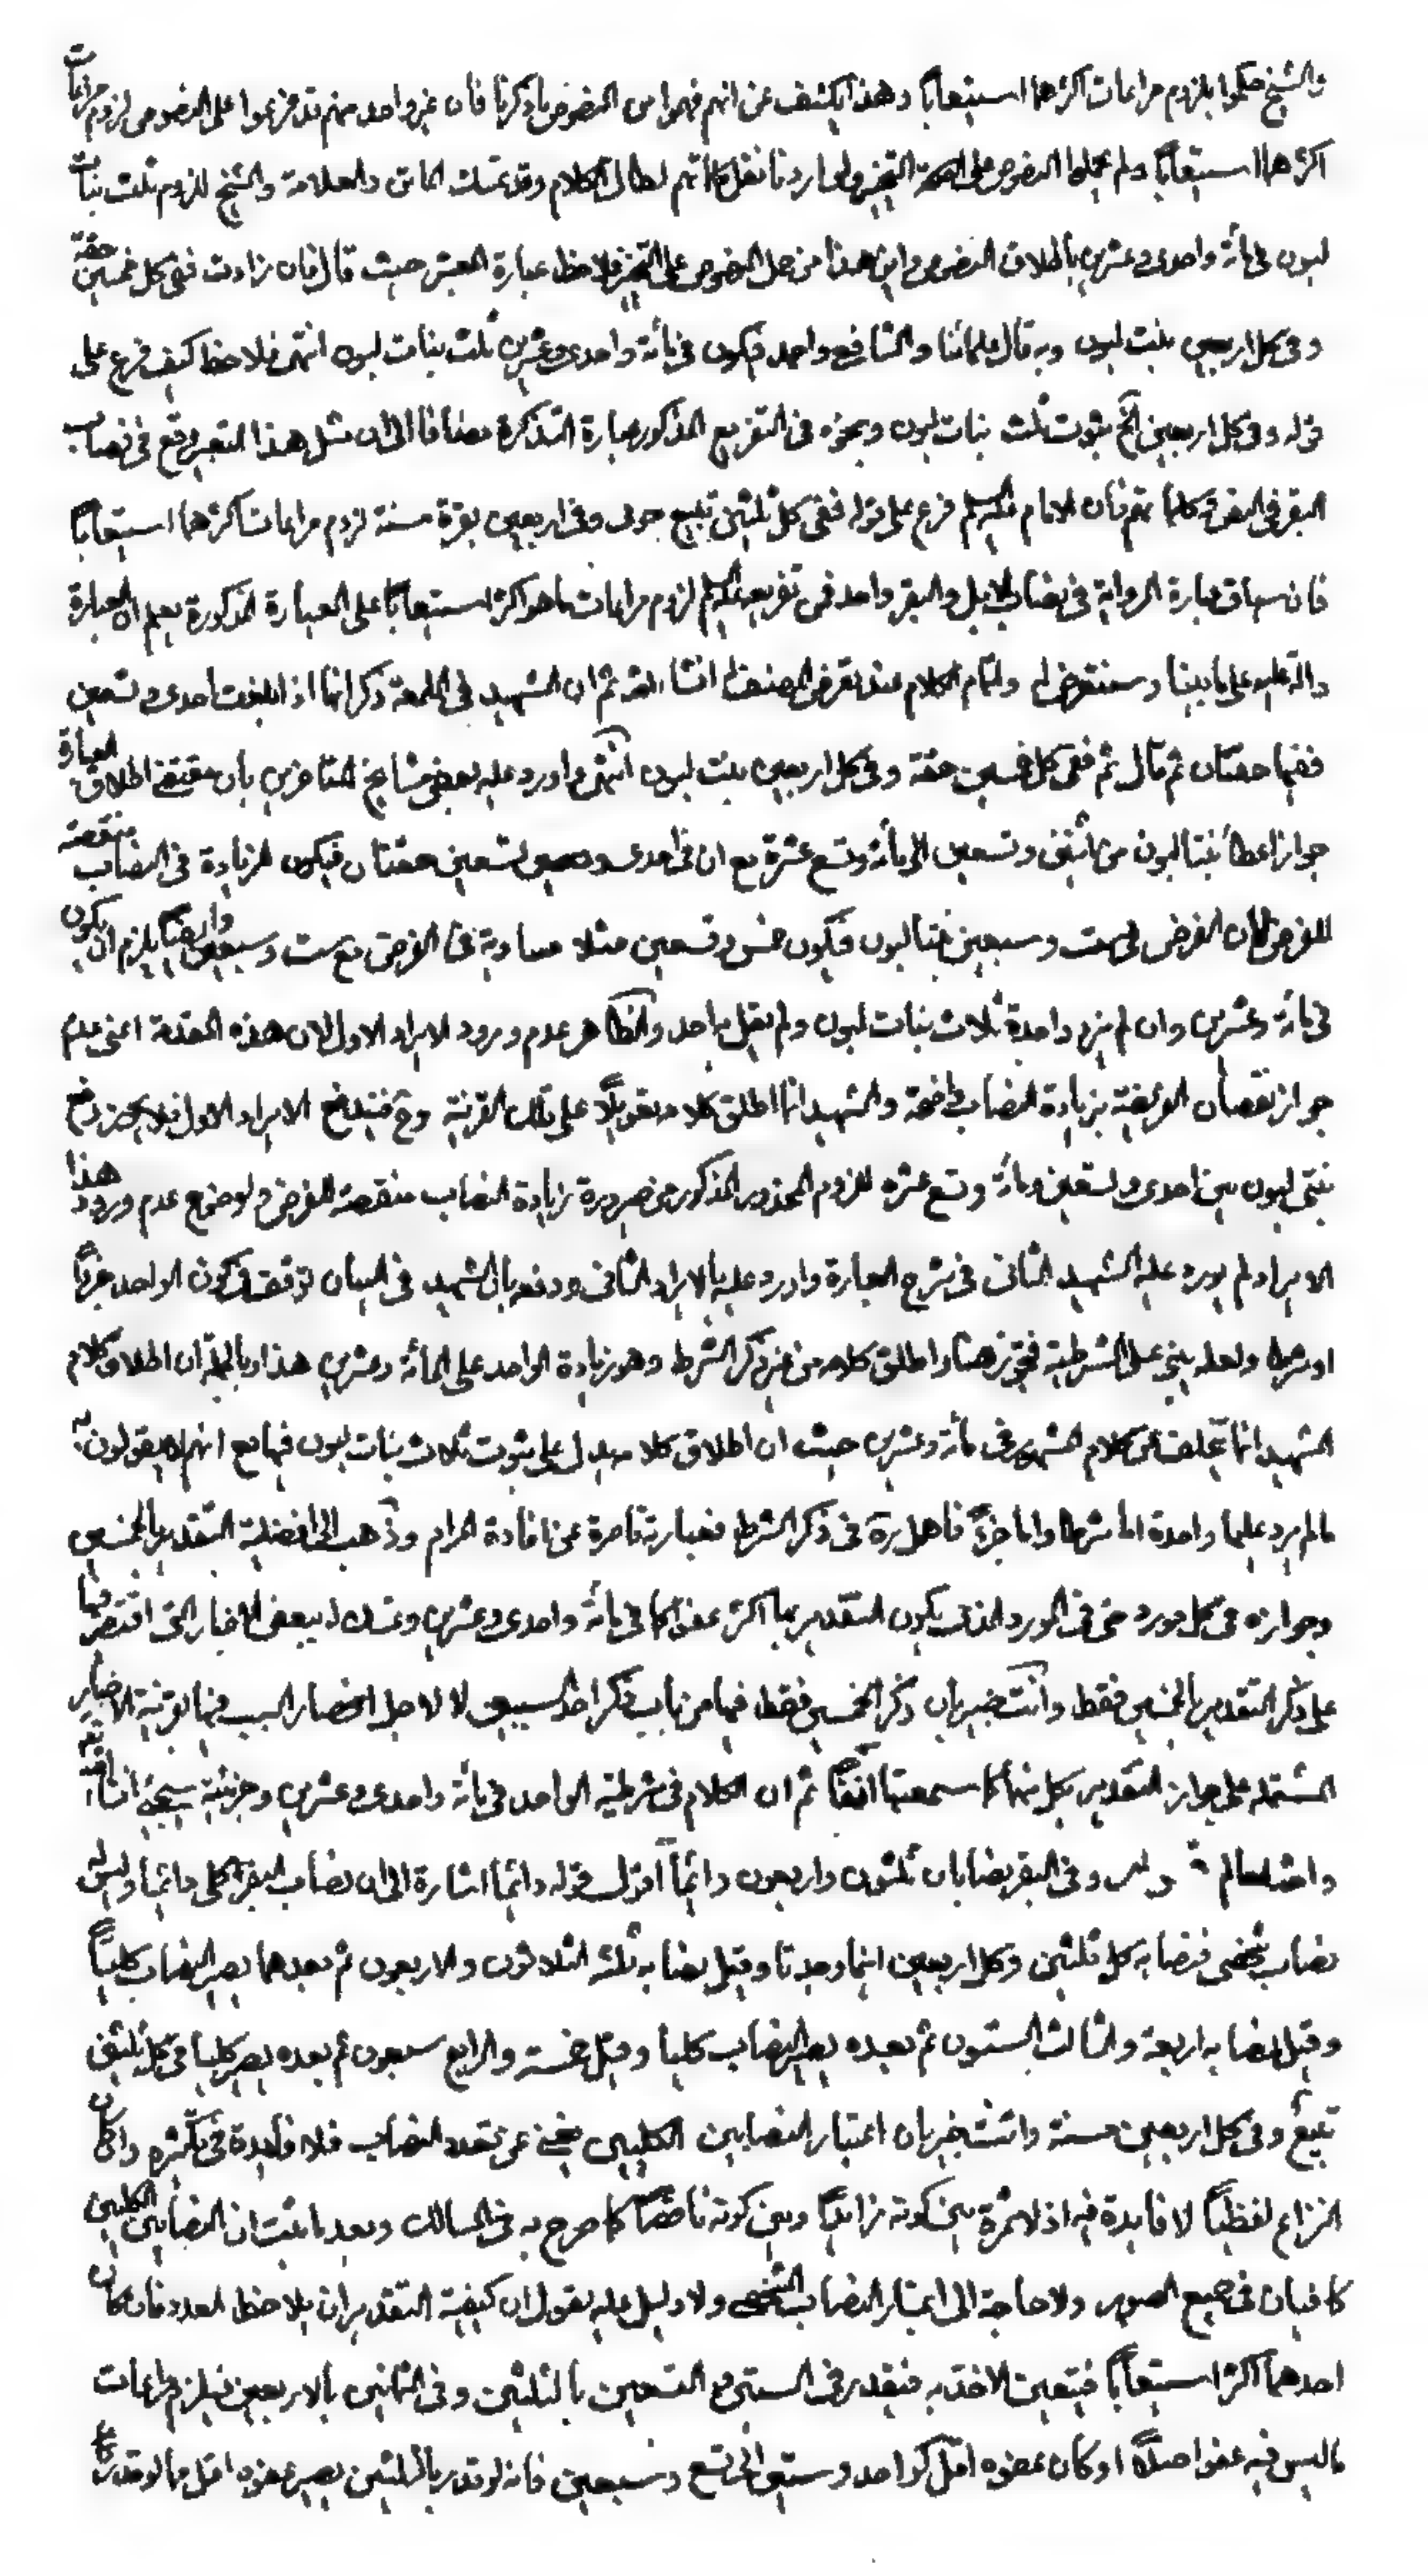 والشيخ حكموا بلزوم مراعات اكثرهما استيعابا وهذا يكشف عن انهم فهموا من النصوص ما ذكرنا فان غير واحد منهم قد فرعوا على النصوص لزوم مراعات
اكثرهما استيعابا ولم يحملوا النصوص على التخيير ولو اردنا نقل كلماتهم لطال الكلام وقد تمسك الماتن والعلامة والشيخ للزوم ثلث بنات
لبون في مأة واحدى وعشرين باطلاق النصوص واين هذا من حمل النصوص على التخيير فلاحظ عبارة المعتبر حيث قال فان زادت ففي كل خمسين حقة
وفي كل اربعين بنت لبون وبه قال علمائنا والشافعي واحمد فيكون في مأة واحدى وعشرين ثلث بنات لبون انتهى فلاحظ كيف فرع على
قوله وفي كل اربعين الخ ثبوت ثلث بنات لبون ونحوه في التفريع المذكور عبارة التذكرة مضافا الى ان مثل هذا التعبير وقع في نصاب
البقر في الفقرة كلها تقدم فان الامام عليه السلام فرع على قوله ففي كل ثلثين تبيع حولي وفي اربعين بقرة مسنة لزوم مراعات اكثرهما استيعابا
فان سياق عبارة الرواية في نصاب الابل والبقر واحد فمن تفريعه عليه السلام لزوم مراعات ما هو اكثر استيعابا على العبارة المذكورة يعلم ان العبارة
دالة عليه على ما بينا وسنتعرض له ولتمام الكلام عند تعرض المصنف له انشاء الله ثم ان الشهيد في اللمعة ذكر انها اذا بلغت احدى وتسعين
ففيها حقتان ثم قال ثم ففي كل خمسين حقة وفي كل اربعين بنت لبون انتهى واورد عليه بعض مشايخ المتاخرين بان مقتضى اطلاق العبارة
جواز اعطاء بنتا لبون من اثنين وتسعين الى مأة وتسع عشرة مع ان في احدى وتسعين حقتان فيكون الزيادة في النصاب منقصة
للفرض لان الفرض في ست وسبعين بنتا لبون فيكون خمس وتسعين مثلا مساوية في الفرض مع ست وسبعين وايضا يلزم ان يكون
في مأة وعشرين وان لم يزد واحدة ثلاث بنات لبون ولم يقل به احد والظاهر عدم ورود الايراد الاول لان هذه المقدمة اعني عدم
جواز نقصان الفريضة بزيادة النصاب واضحة والشهيد انما اطلق كلامه تعويلا على تلك القرينة وح فيندفع الايراد الاول فلا يجوز دفع
بنتي لبون بين احدى وتسعين ومأة وتسع عشرة للزوم المحذور المذكور من صيرورة زيادة النصاب منقصة للفرض ولوضوح عدم ورود هذا
الايراد لم يورده عليه الشهيد الثاني في شرح العبارة واورد عليه بالايراد الثاني ودفعه بان الشهيد في البيان توقف في كون الواحد جزءا
او شرطا ولعله بنى على الشرطية فتجوز هنا واطلق كلامه من غير ذكر الشرط وهو زيادة الواحد على المأة وعشرين هذا وبالجملة ان اطلاق كلام
الشهيد انما تخلف عن كلام المشهور في مأة وعشرين حيث ان اطلاق كلامه يدل على ثبوت ثلاث بنات لبون فيها مع انهم لا يقولون به
ما لم يزد عليها واحدة اما شرطا واما جزءا فاهل بره في ذكر الشرط فعبارته قاصرة عن افادة المرام وذهب الى افضلية التقدير بالخمسين
وجوازه في كل مورد حتى في المورد الذي يكون التقدير بها اكثر عفوا كما في مأة واحدى وعشرين وتمسك له ببعض الاخبار التي اقتصر فيها
على ذكر التقدير بالخمسين فقط وانت خبير بان ذكر الخمسين فقط فيها من باب ذكر احد السببين لا لاجل انحصار السبب فيها بقرينة الاخبار
المشتملة على جواز التقدير بكل منهما كما سمعتها انفا ثم ان الكلام في شرطية الواحد في مأة واحدى وعشرين وجزئيته سيجئ انشاء الله
والله العالم وفي البقر نصابان ثلثون واربعون دائما اقول قوله دائما اشارة الى ان نصاب البقر كلي دائما وليس له
نصاب شخصي فنصابه كل ثلثين وكل اربعين اينما وجدتا وقيل نصابه ثلثة الثلاثون والاربعون ثم بعدهما يصير النصاب كليا
وقيل نصابه اربعة والثالث الستون ثم بعده يصير النصاب كليا وقيل خمسة والرابع سبعون ثم بعده يصير كليا في كل ثلثين
تبيع وفي كل اربعين مسنة وانت خبير بان اعتبار النصابين الكليين يغني عن تعدد النصاب فلا فائدة في تكثره وان كان
النزاع لفظيا لا فائدة فيه اذ لا ثمرة بين كونه زائدا وبين كونه ناقصا كما صرح به في المسالك وبعد ما ثبت ان النصابين الكليين
كافيان في جميع الصور ولا حاجة الى اعتبار النصاب الشخصي ولا دليل عليه يقول ان كيفية التقدير ان يلاحظ العدد فان كان
احدهما اكثر استيعابا فيتعين الاخذ به فيقدر في الستين مع التسعين بالثلثين وفي الثمانين بالاربعين فيلزم مراعات
ما ليس فيه عفو اصلا او كان عفوه اقل كواحد وستين الى تسع وسبعين فانه لو قدر بالثلثين يصير عفوه اقل مما لو قدر